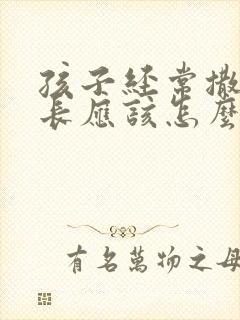 孩子経常撒
長應該怎麼
有名萬物之母